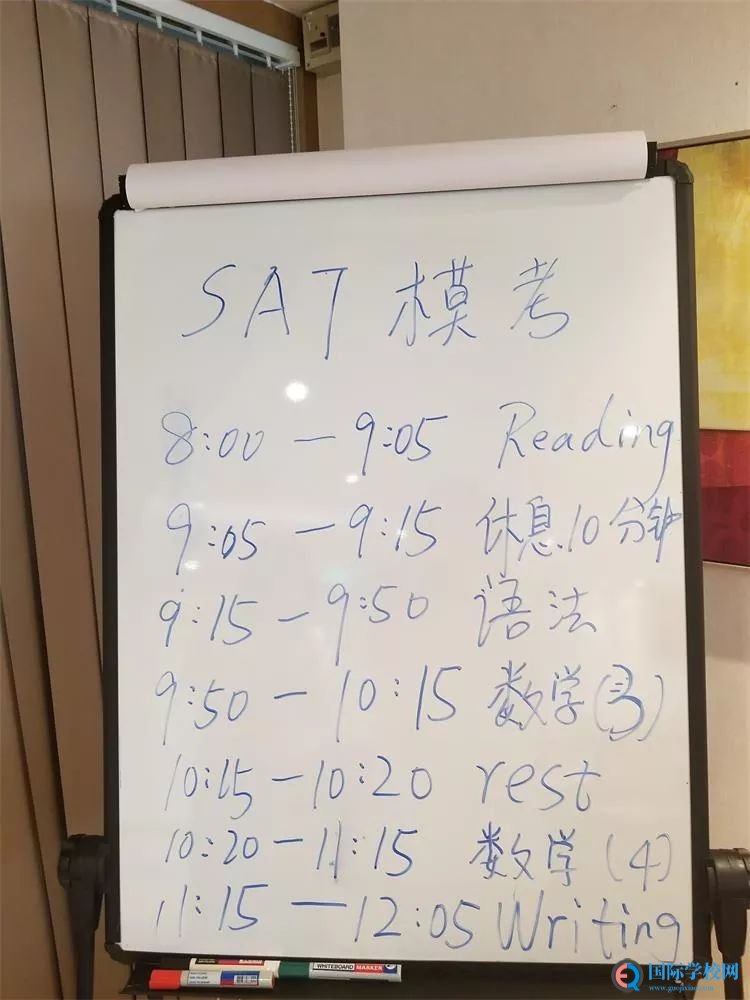 SAT 模考
8:00 — 9:05 Reading
9:05 — 9:15 休息10分钟
9:15 — 9:50 语法
9:50 — 10:15 数学(3)
10:15 — 10:20 rest
10:20 — 11:15 数学(4)
11:15 — 12:05 Writing
WHITEBOARD MARKER
国际学校网
www.guojixiao.com